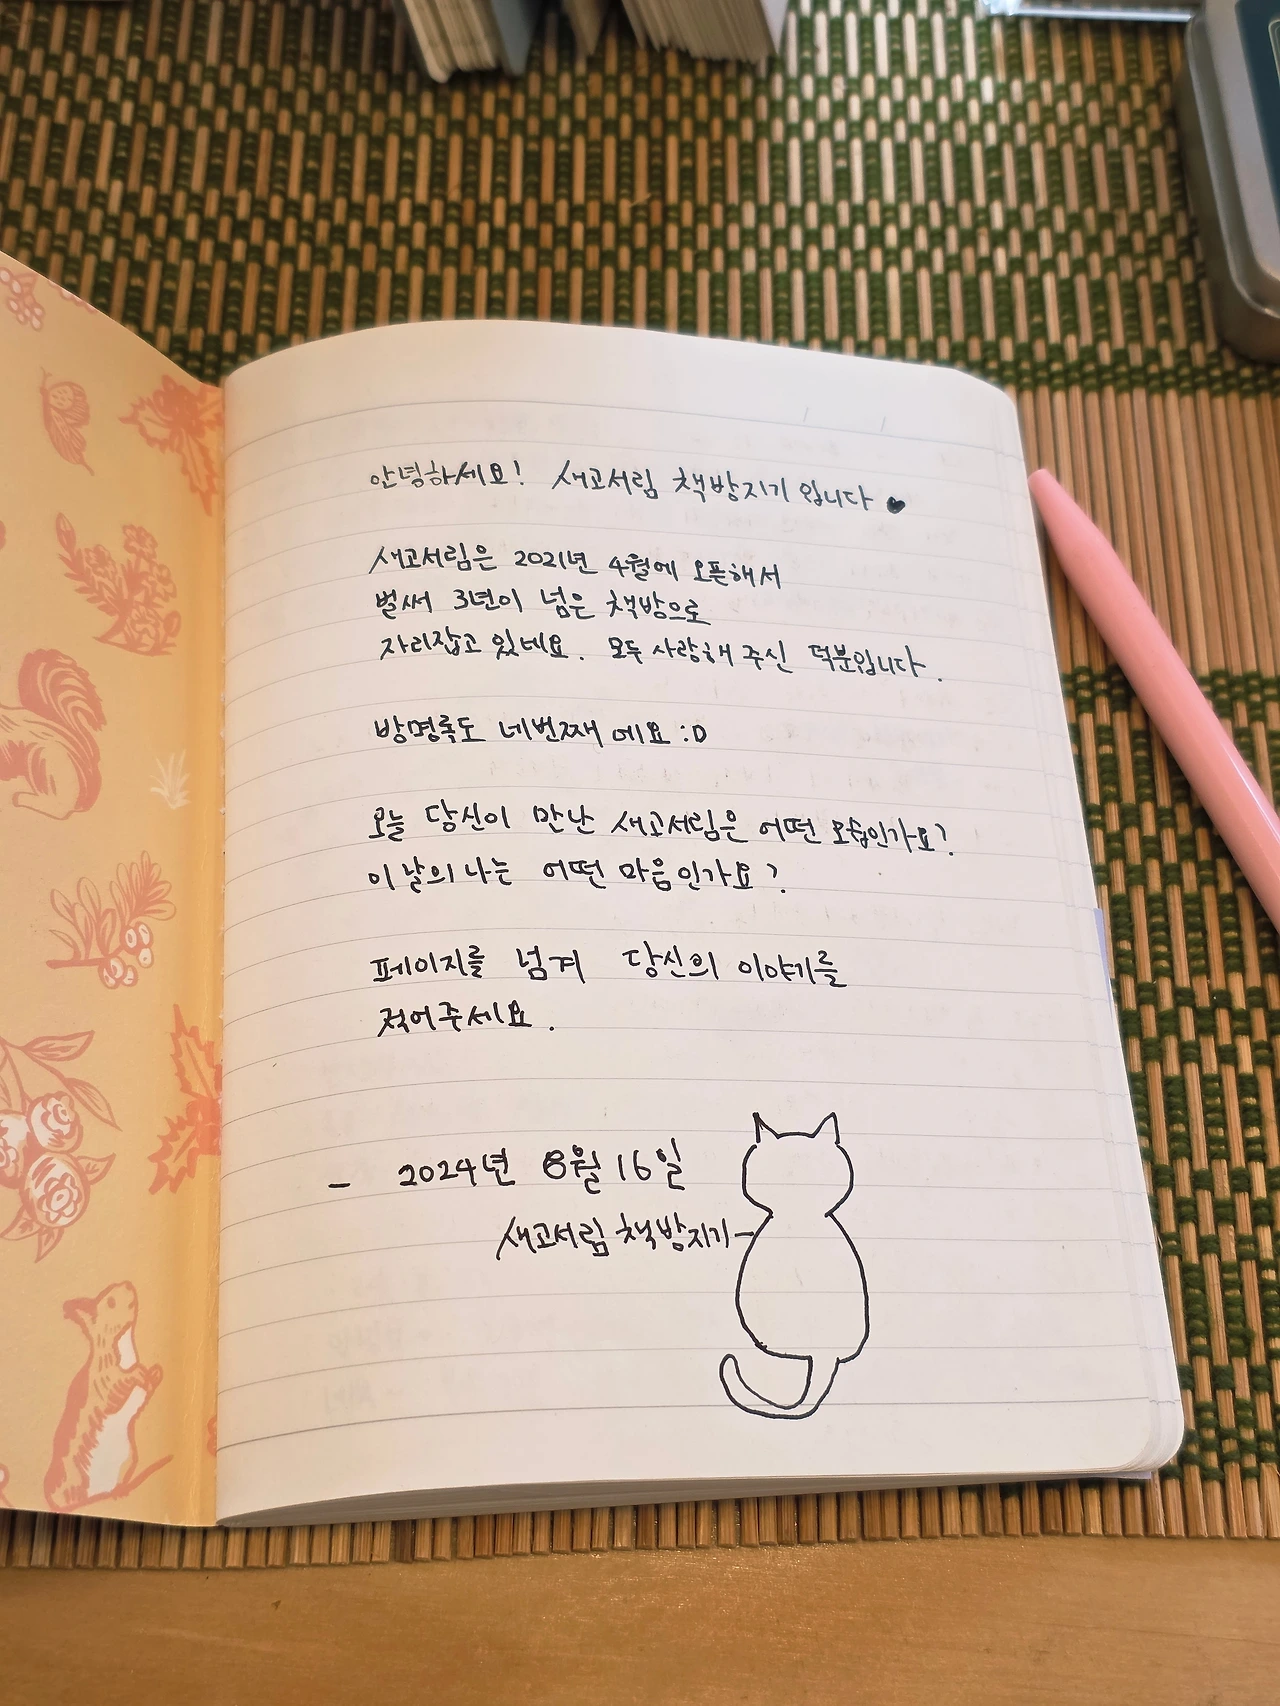 안녕하세요! 새고서림 책방지기 입니다 ♥
새고서림은 2021년 4월에 오픈해서
벌써 3년이 넘은 책방으로
자리잡고 있네요. 모두 사랑해 주신 덕분입니다.
방명록도 네번째 에요 :D
오늘 당신이 만난 새고서림은 어떤 모습인가요?
이 날의 나는 어떤 마음인가요?
페이지를 넘겨 당신의 이야기를
적어주세요.
- 2024년 8월 16일
새고서림 책방지기-